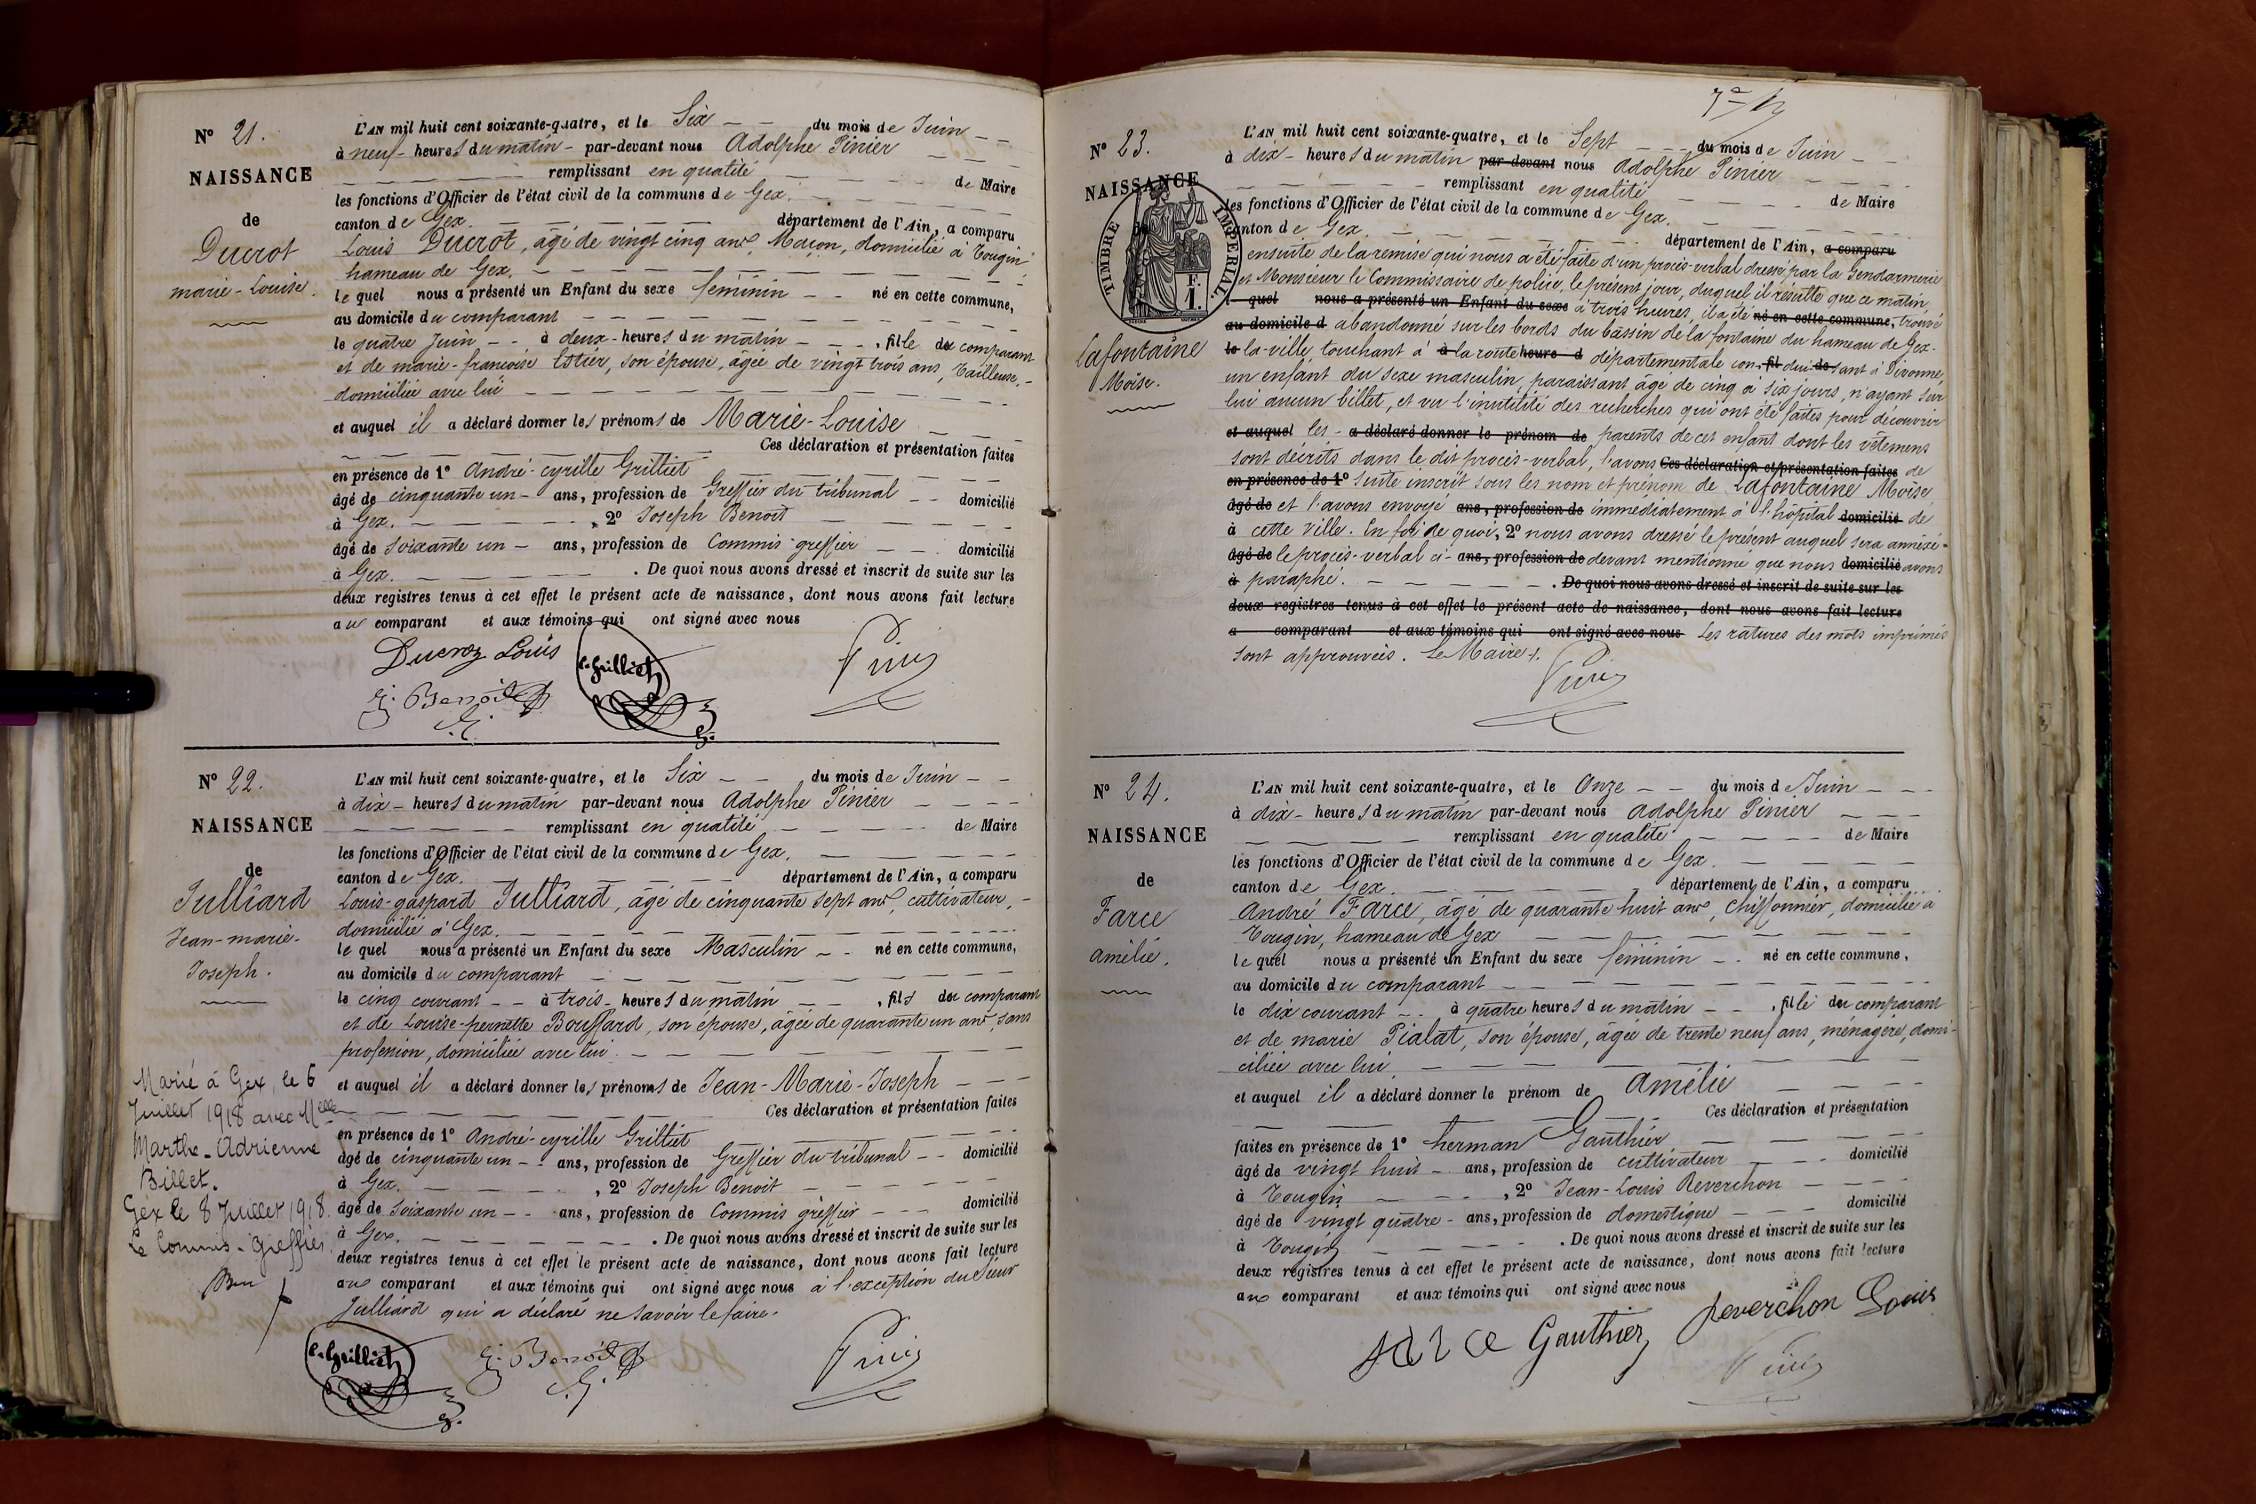 N° 21.
NAISSANCE
de
Ducrot
marie-Louise.
L'AN mil huit cent soixante-quatre, et le Six du mois de Juin
à neuf heures du matin par-devant nous Adolphe Pinier
remplissant en qualité de Maire
les fonctions d'Officier de l'état civil de la commune de Gex.
canton de Gex. département de l'Ain, a comparu
Louis Ducrot, âgé de vingt cinq ans, Maçon, domicilié à Tougin,
hameau de Gex.
le quel nous a présenté un Enfant du sexe féminin né en cette commune,
au domicile du comparant
le quatre Juin à deux heures du matin, fille du comparant
et de marie-françoise Estier, son épouse, âgée de vingt trois ans, Tailleuse,
domiciliée avec lui
et auquel il a déclaré donner les prénoms de Marie-Louise
Ces déclaration et présentation faites
en présence de 1° André-cyrille Grilliet
âgé de cinquante un ans, profession de Greffier du tribunal domicilié
à Gex. , 2° Joseph Benoit
âgé de soixante un ans, profession de Commis-greffier domicilié
à Gex. . De quoi nous avons dressé et inscrit de suite sur les
deux registres tenus à cet effet le présent acte de naissance, dont nous avons fait lecture
au comparant et aux témoins qui ont signé avec nous
Ducroz Louis
C. Grilliet
J. Benoit
Pinier
N° 22.
NAISSANCE
de
Julliard
Jean-marie-
Joseph.
Marié à Gex, le 6
Juillet 1918 avec Melle
Marthe-Adrienne
Billet.
Gex le 8 Juillet 1918.
Le Commis-Greffier
L'AN mil huit cent soixante-quatre, et le Six du mois de Juin
à dix heures du matin par-devant nous Adolphe Pinier
remplissant en qualité de Maire
les fonctions d'Officier de l'état civil de la commune de Gex.
canton de Gex. département de l'Ain, a comparu
Louis-gaspard Julliard, âgé de cinquante sept ans, cultivateur,
domicilié à Gex.
le quel nous a présenté un Enfant du sexe Masculin né en cette commune,
au domicile du comparant
le cinq courant à trois heures du matin, fils du comparant
et de Louise-pernette Bouffard, son épouse, âgée de quarante un ans, sans
profession, domiciliée avec lui.
et auquel il a déclaré donner les prénoms de Jean-Marie-Joseph
Ces déclaration et présentation faites
en présence de 1° André-cyrille Grilliet
âgé de cinquante un ans, profession de Greffier du tribunal domicilié
à Gex. , 2° Joseph Benoit
âgé de soixante un ans, profession de Commis greffier domicilié
à Gex. . De quoi nous avons dressé et inscrit de suite sur les
deux registres tenus à cet effet le présent acte de naissance, dont nous avons fait lecture
aux comparant et aux témoins qui ont signé avec nous à l'exception du Sieur
Julliard qui a déclaré ne savoir le faire.
C. Grilliet
J. Benoit
Pinier
N° 23.
NAISSANCE
TIMBRE IMPERIAL
1 F.
Lafontaine
Moïse.
L'AN mil huit cent soixante-quatre, et le Sept du mois de Juin
à dix heures du matin par-devant nous Adolphe Pinier
remplissant en qualité de Maire
les fonctions d'Officier de l'état civil de la commune de Gex.
canton de Gex. département de l'Ain, a comparu
ensuite de la remise qui nous a été faite d'un procès-verbal dressé par la Gendarmerie
et Monsieur le Commissaire de police, le présent jour, duquel il résulte que ce matin
l quel nous a présenté un Enfant du sexe à trois heures, il a été né en cette commune, trouvé
au domicile d abandonné sur les bords du bassin de la fontaine du hameau de Gex-
le la-ville, touchant à à la route heure d départementale con- fil dui- de sant à Divonne,
un enfant du sexe masculin, paraissant âgé de cinq à six jours, n'ayant sur
lui aucun billet, et vu l'inutilité des recherches qui ont été faites pour découvrir
et auquel les a déclaré donner le prénom de parents de cet enfant dont les vêtements
sont décrits dans le dit procès-verbal, l'avons Ces déclaration et présentation faites de
en présence de 1° suite inscrit sous les nom et prénom de Lafontaine Moïse
âgé de et l'avons envoyé ans, profession de immédiatement à l'hôpital domicilié de
à cette ville. En foi de quoi, 2° nous avons dressé le présent auquel sera annexé
âgé de le procès-verbal ci- ans, profession de devant mentionné que nous domicilié avons
à paraphé. . De quoi nous avons dressé et inscrit de suite sur les
deux registres tenus à cet effet le présent acte de naissance, dont nous avons fait lecture
a comparant et aux témoins qui ont signé avec nous Les ratures des mots imprimés
sont approuvées. Le Maire.
Pinier
N° 24.
NAISSANCE
de
Farce
amélie.
L'AN mil huit cent soixante-quatre, et le Onze du mois de Juin
à dix heures du matin par-devant nous Adolphe Pinier
remplissant en qualité de Maire
les fonctions d'Officier de l'état civil de la commune de Gex.
canton de Gex. département de l'Ain, a comparu
André Farce, âgé de quarante huit ans, chiffonnier, domicilié à
Tougin, hameau de Gex
le quel nous a présenté un Enfant du sexe féminin né en cette commune,
au domicile du comparant
le dix courant à quatre heures du matin, fille du comparant
et de marie Pialat, son épouse, âgée de trente neuf ans, ménagère, domi-
ciliée avec lui.
et auquel il a déclaré donner le prénom de Amélie
Ces déclaration et présentation
faites en présence de 1° herman Gauthier
âgé de vingt huit ans, profession de cultivateur domicilié
à Tougin , 2° Jean-Louis Reverchon
âgé de vingt quatre ans, profession de domestique domicilié
à Tougin . De quoi nous avons dressé et inscrit de suite sur les
deux registres tenus à cet effet le présent acte de naissance, dont nous avons fait lecture
aux comparant et aux témoins qui ont signé avec nous
Farce Gauthier Reverchon Louis
Pinier